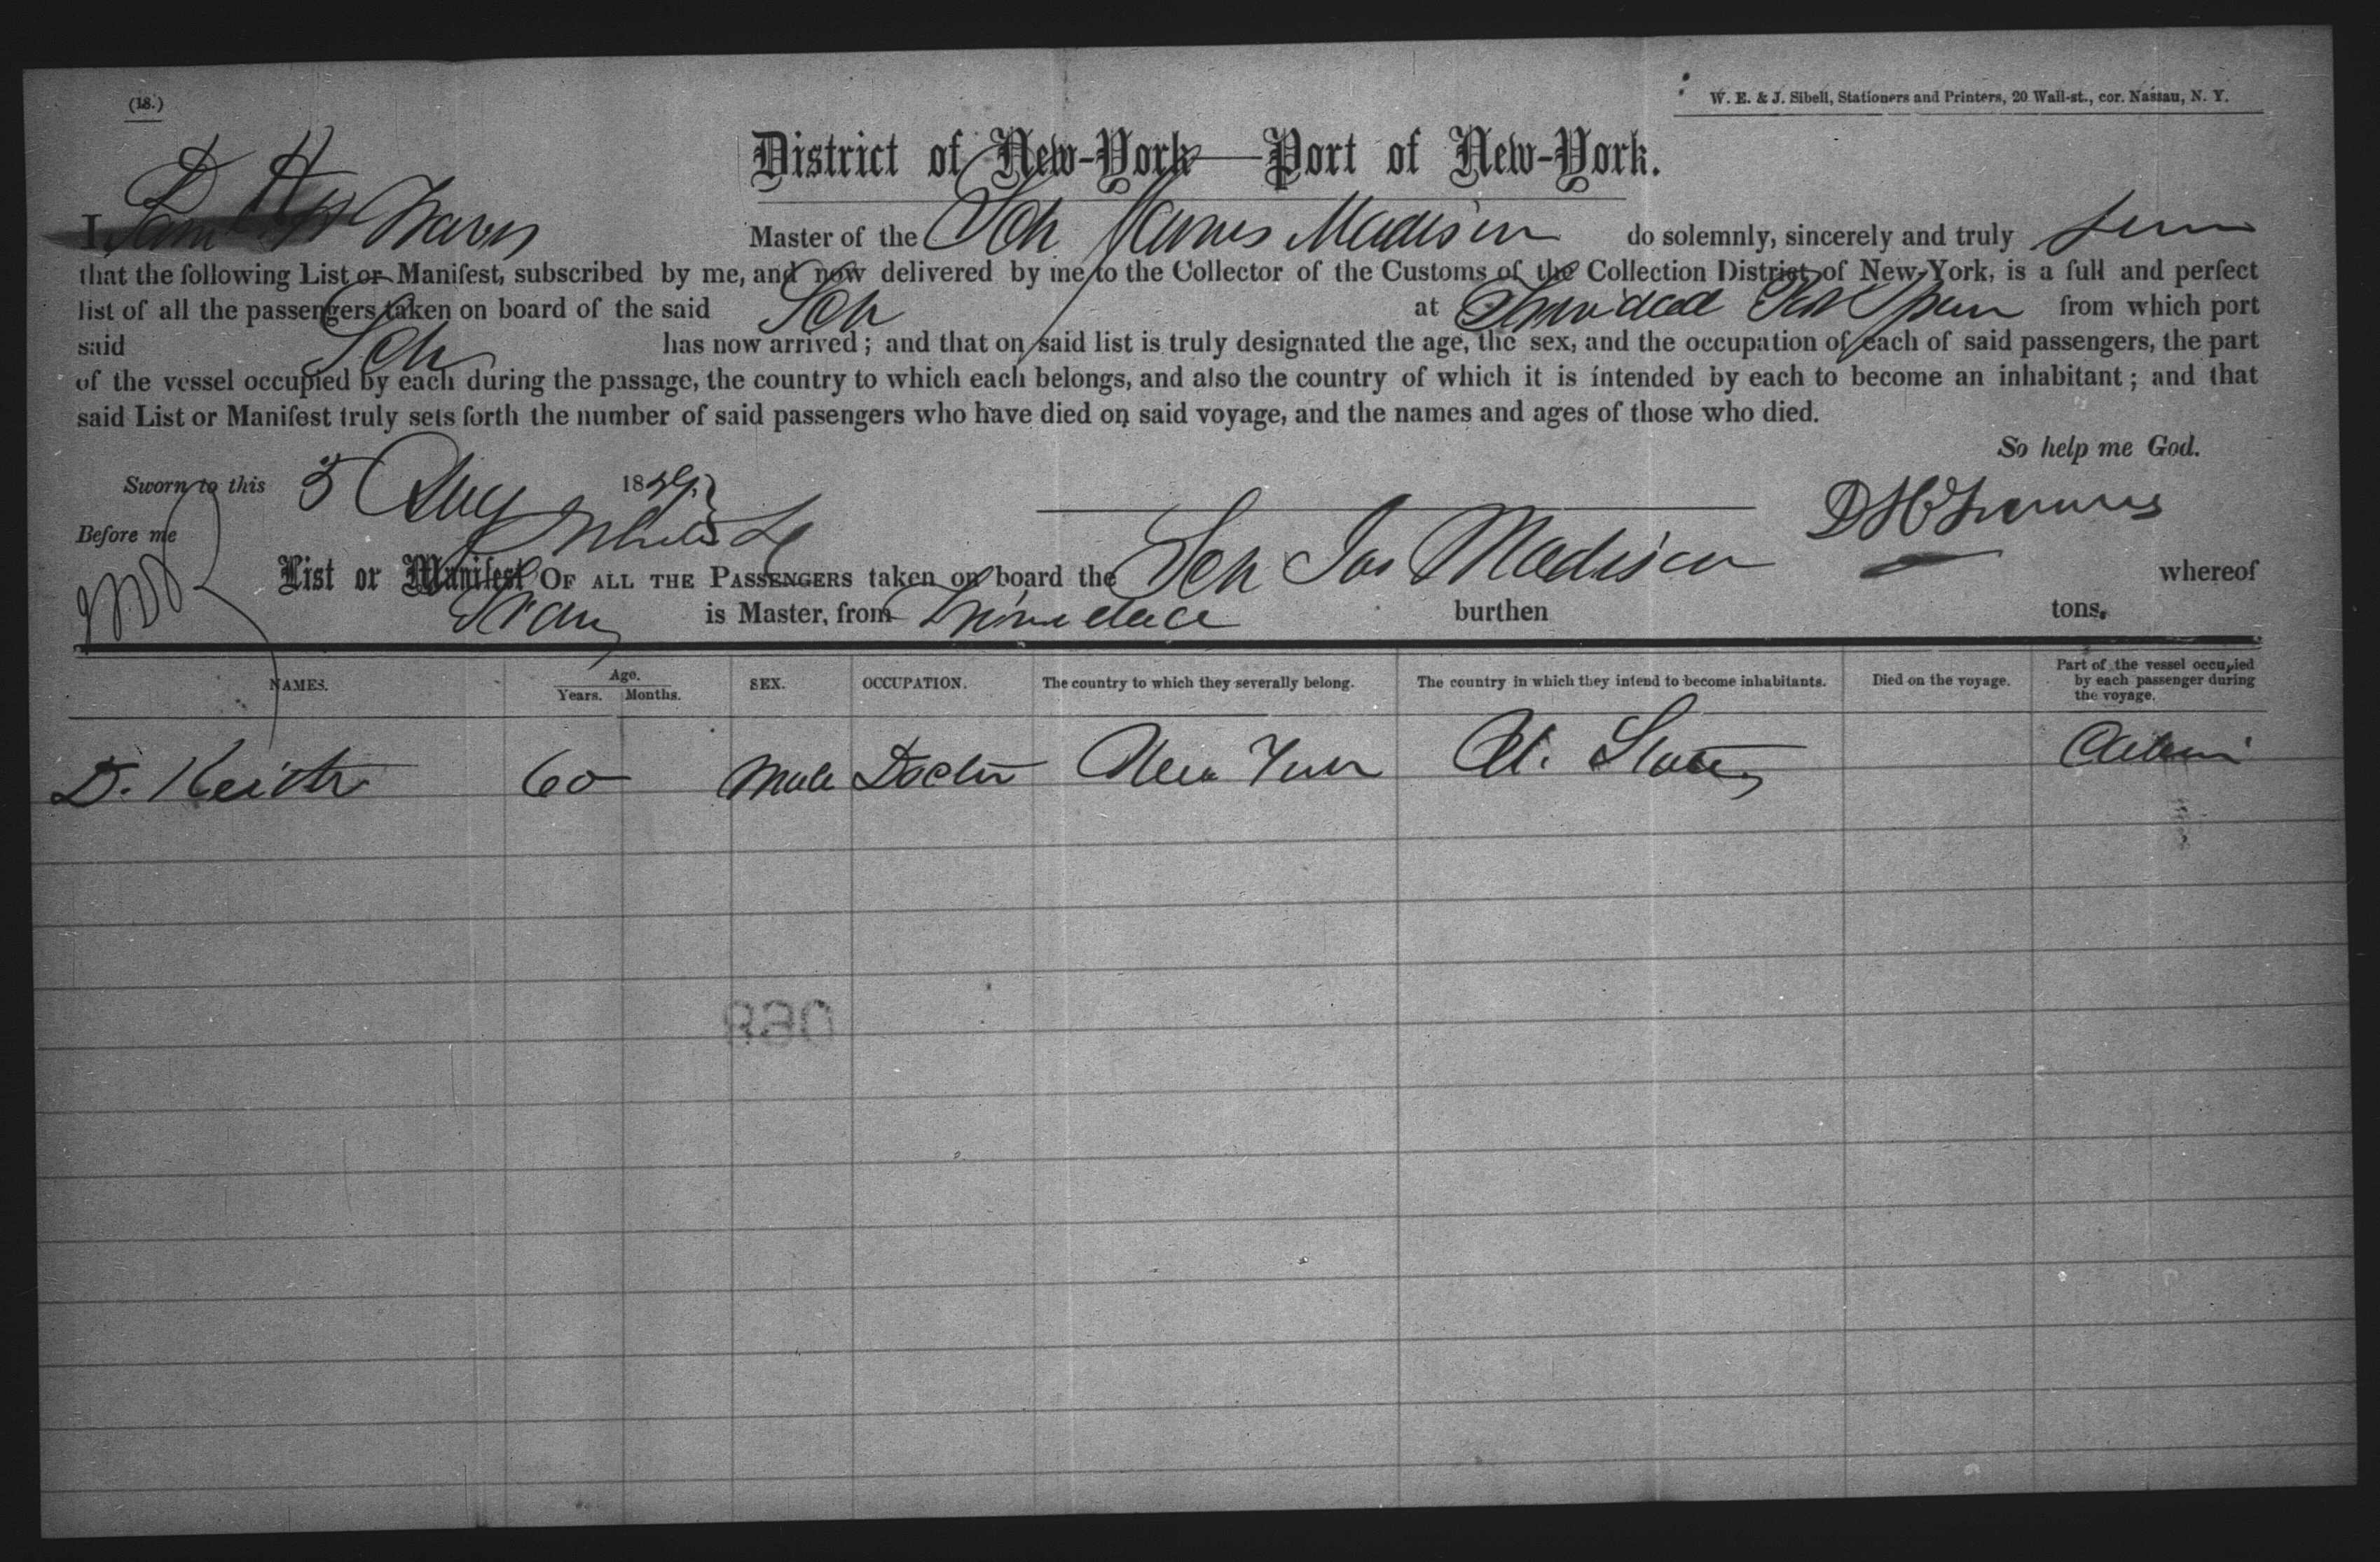 (18.)
W. E. & J. Sibell, Stationers and Printers, 20 Wall-st., cor. Nassau, N. Y.
District of New-York—Port of New-York.
I, Master of the Sch James Madison do solemnly, sincerely and truly
that the following List or Manifest, subscribed by me, and now delivered by me to the Collector of the Customs of the Collection District of New-York, is a full and perfect
list of all the passengers taken on board of the said Sch at from which port
said Sch has now arrived; and that on said list is truly designated the age, the sex, and the occupation of each of said passengers, the part
of the vessel occupied by each during the passage, the country to which each belongs, and also the country of which it is intended by each to become an inhabitant; and that
said List or Manifest truly sets forth the number of said passengers who have died on said voyage, and the names and ages of those who died.
So help me God.
Sworn to this 5 Aug 1859
Before me
List or Manifest OF ALL THE PASSENGERS taken on board the Sch Jas Madison whereof
is Master, from burthen tons.
NAMES. Age. Years. Months. SEX. OCCUPATION. The country to which they severally belong. The country in which they intend to become inhabitants. Died on the voyage. Part of the vessel occupied by each passenger during the voyage.
D. Keith 60 Male Doctor New York U. States Cabin